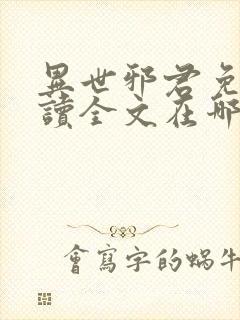 異世邪君免
讀全文在哪
會寫字的蝸牛